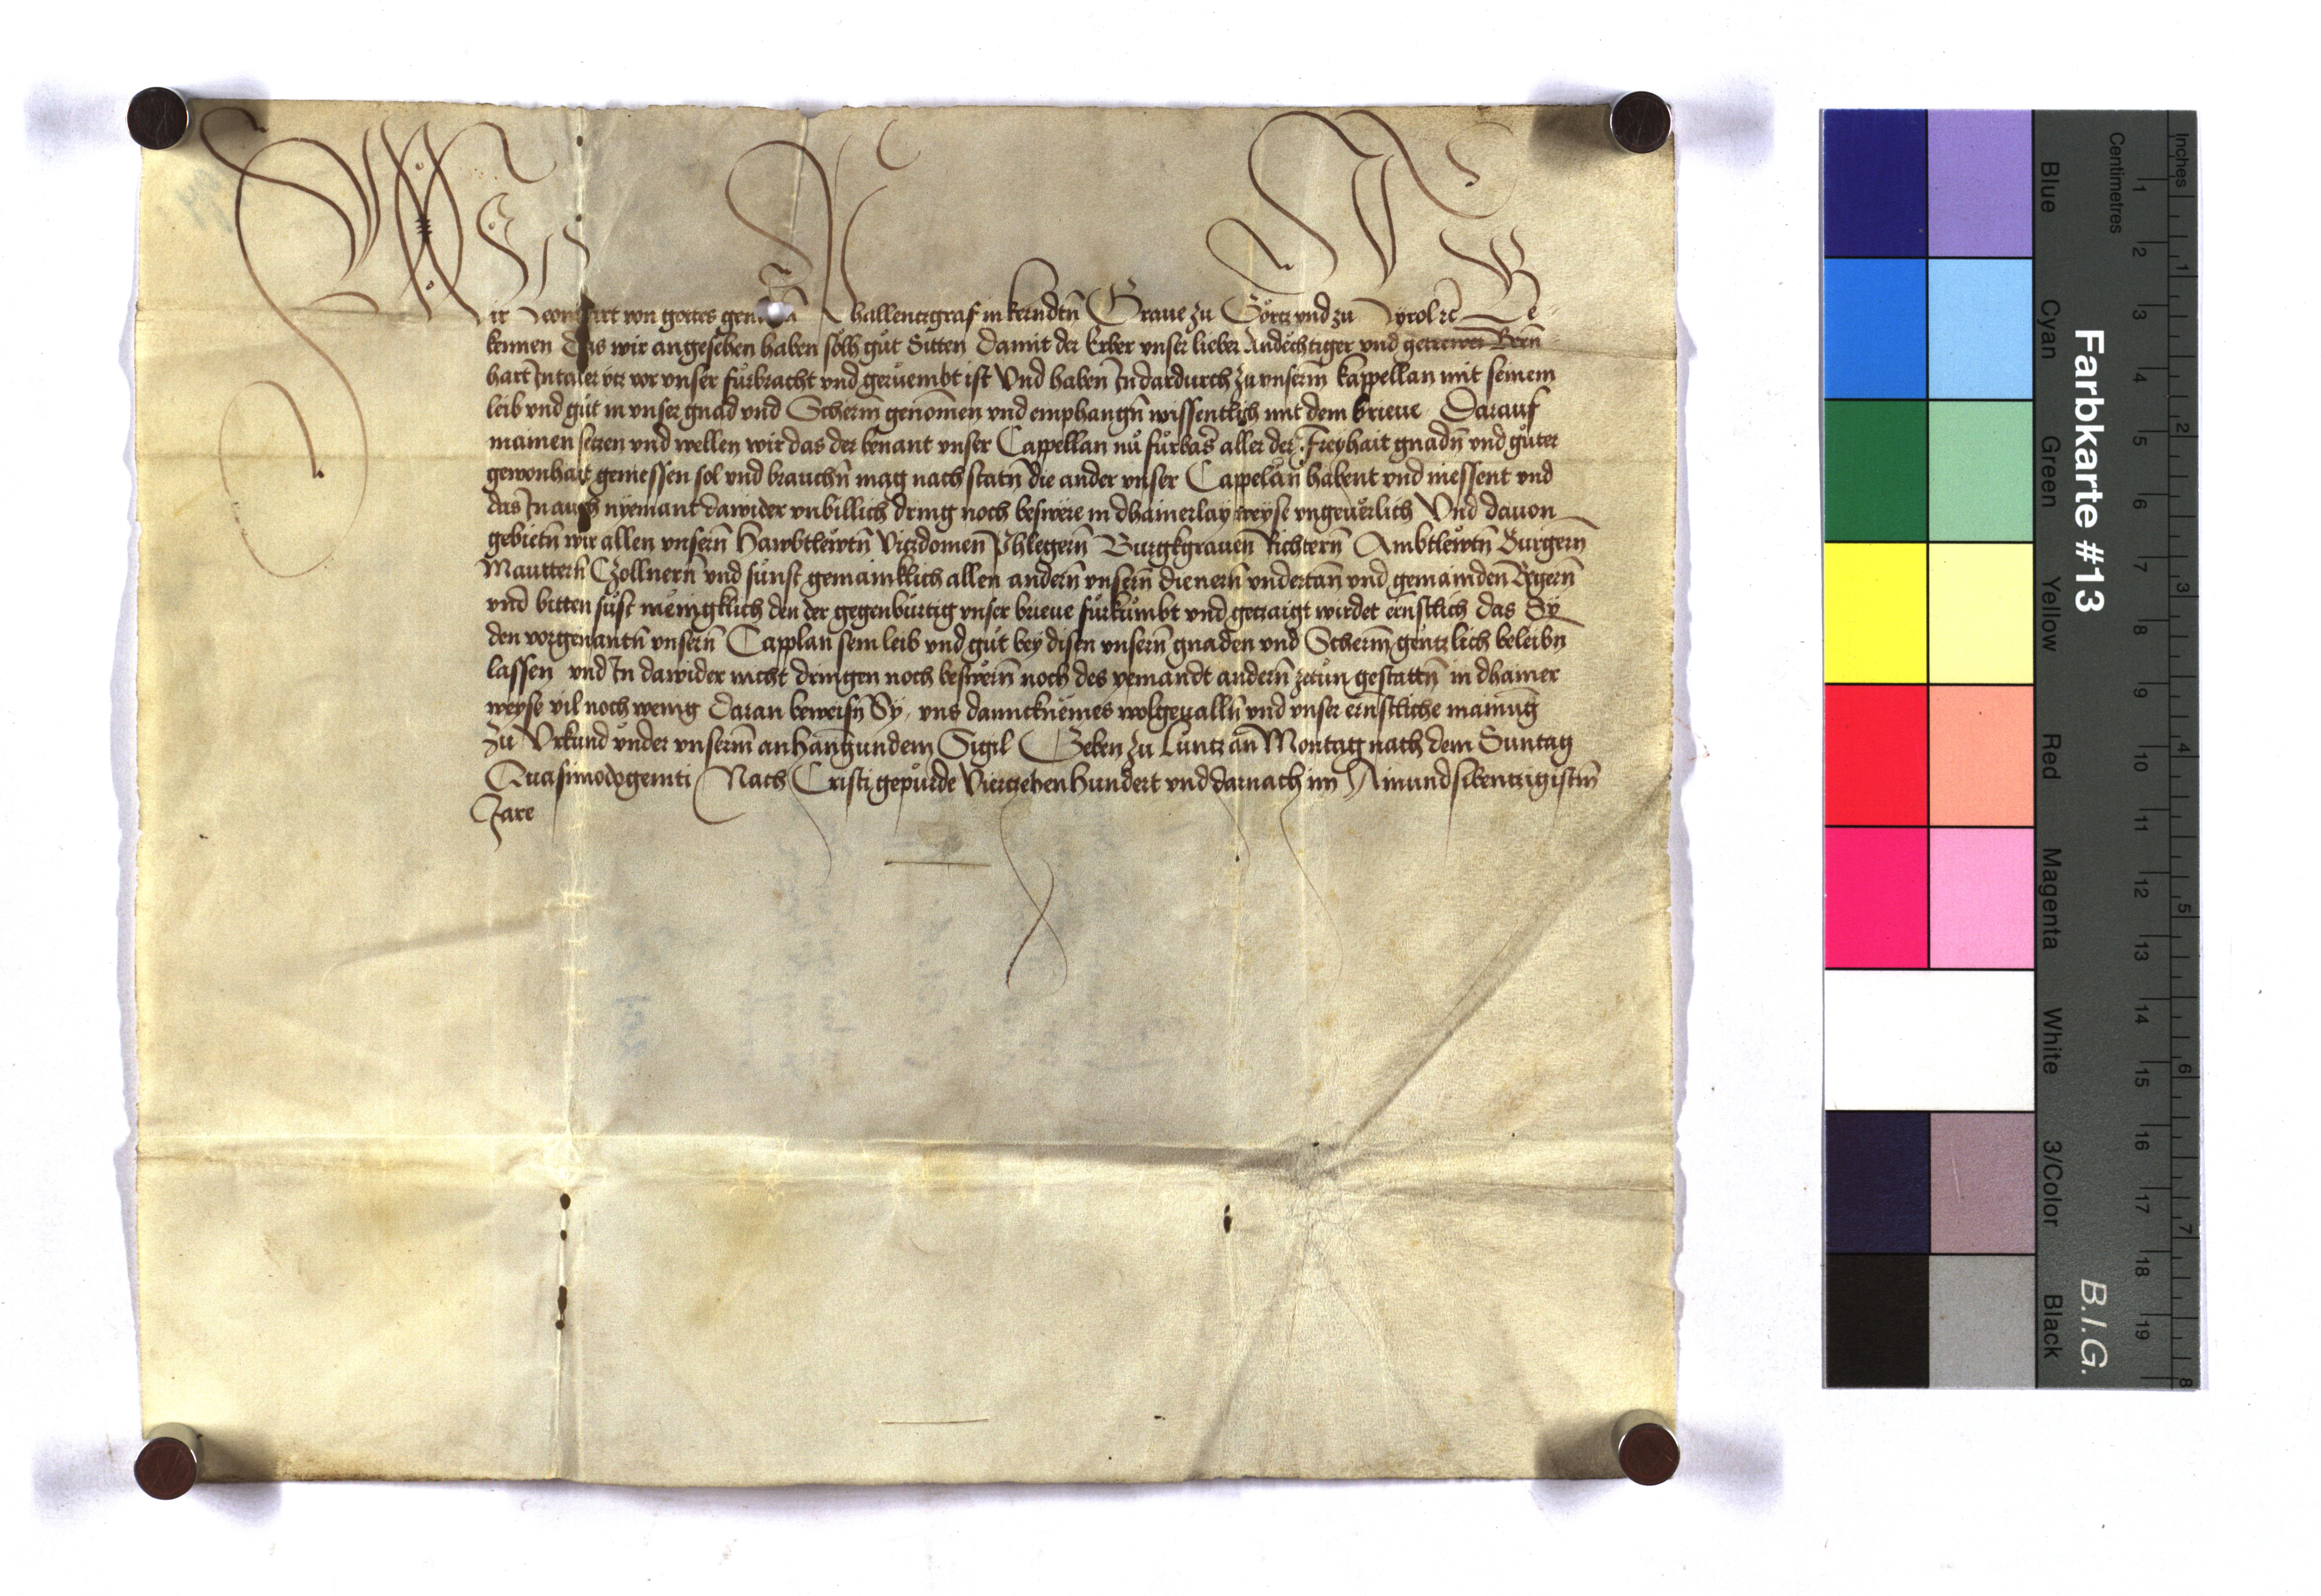 Wir Leonhart von gottes genaden Phallenntzgraf in kerndtn̄ Graue zu Görtz vnd zu Tyrol ꝛc Be-
kennen Das wir angesehen haben solh gůt Sitten Damit der Erber vnser lieber Andechtiger vnd getrewer Bern̄
hart Intaler ytz vor vnser fůrbracht vnd gerůembt ist Vnd haben In dardurch zu vnserm̄ kappellan mit seinem
leib vnd gůt in vnser gnad vnd Scherm̄ genomen vnd emphangn̄ wissentlich mit dem brieue Darauf
mainen setzen vnd wellen wir das der benant vnser Cappellan nů fůrbas aller der Freyhait gnadn̄ vnd gůter
gewonhait geniessen sol vnd brauchn̄ mag nach statn̄ die ander vnser Cappelän habent vnd niessent vnd
das In auch nyemant dawider vnbillich dring noch beswäre in dhainerlay weyse vngeuërlich Vnd dauon
gebietn̄ wir allen vnsern̄ Hawbtlewtn̄ Vitzdomen Phlegern̄ Burgkgrauen Richtern̄ Ambtlewtn̄ Burgern̄
Mauttern̄ Czollnern̄ vnd sůnst gemainklich allen andern̄ vnsern̄ dienern̄ vndertan̄ vnd gemainden Begern̄
vnd bitten sůst mënigklich den der gegenbůrtig vnser brieue fůrkůmbt vnd getzaigt wirdet ernstlich das Sy
den vorgenantn̄ vnsern̄ Capplan sein leib vnd gůt bey disen vnsern̄ gnaden vnd Scherm̄ gentzlich beleibn̄
lassen vnd In dawider nicht dringen noch beswern̄ noch des yemandt andern̄ zetůn gestattn̄ in dhainer
weyse vil noch wenig Daran beweisn̄ Sy vns dannckněmes wolgeualln̄ vnd vnser ernstliche mainūg
Zu Vrkund vnder vnserm̄ anhangundem Sigil Geben zu Lůntz an Montag nach dem Suntag
Quasimodogeniti Nach Cristi gepůrde Viertzehenhundert vnd darnach im Ainundsibentzigistn̄
Jare
Farbkarte #13
B.I.G.
Blue
Cyan
Green
Yellow
Red
Magenta
White
3/Color
Black
Centimetres
1 2 3 4 5 6 7 8 9 10 11 12 13 14 15 16 17 18 19
Inches
1 2 3 4 5 6 7 8